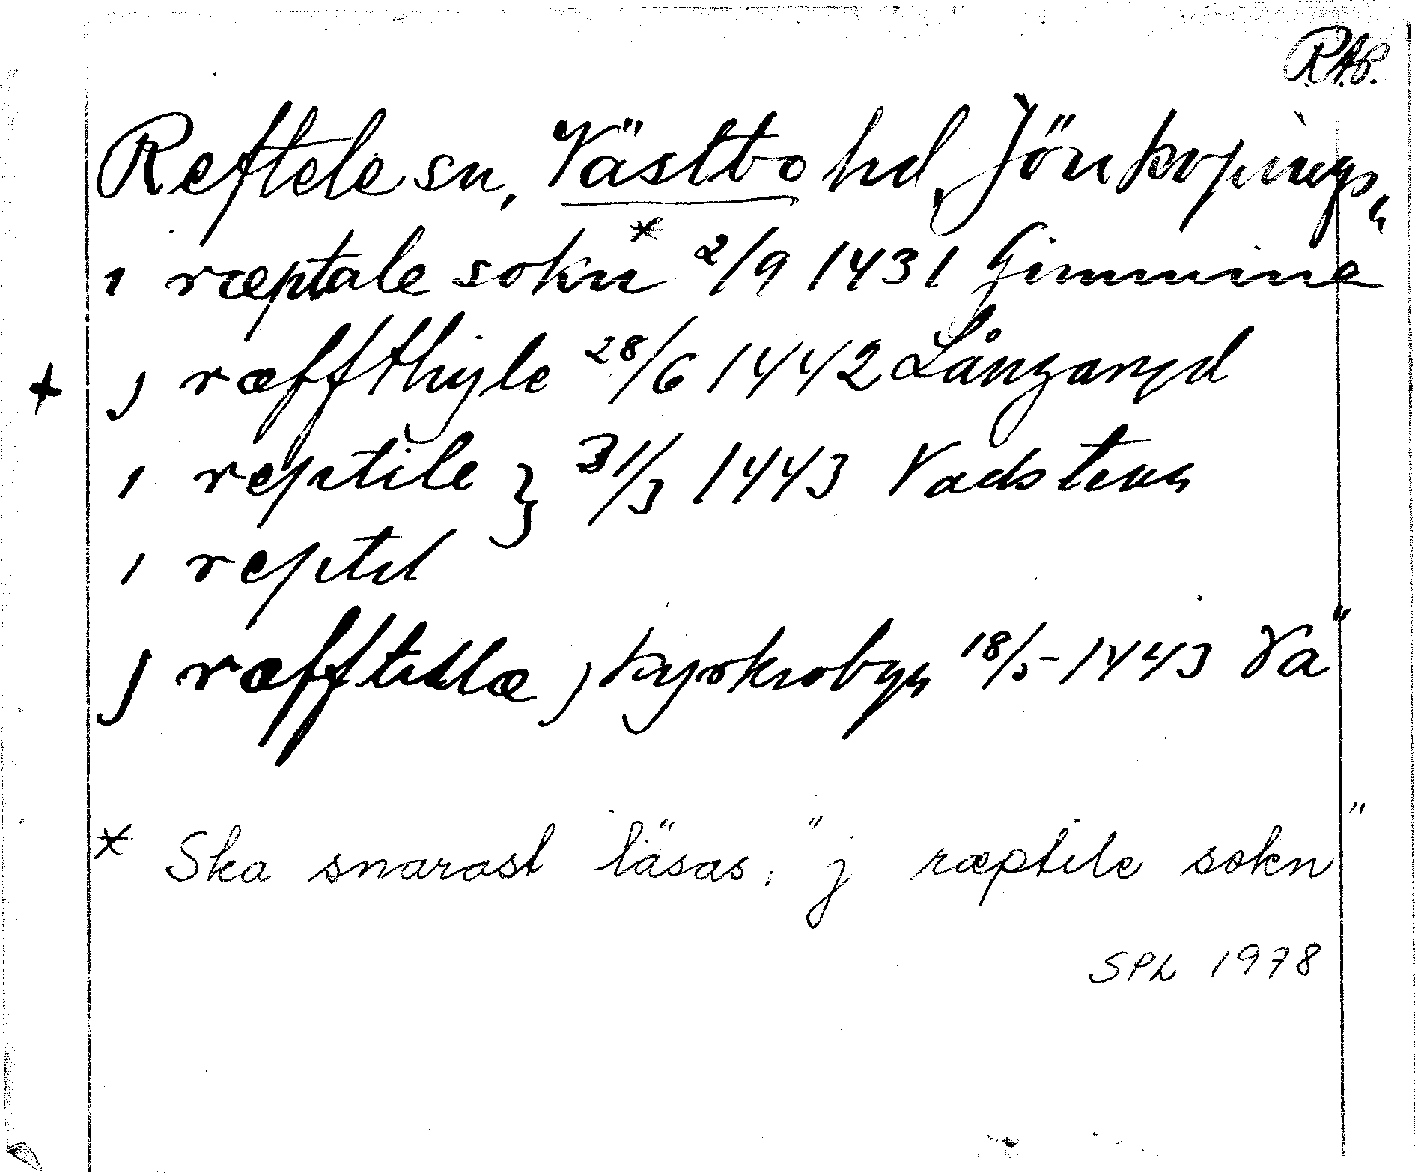 R.A.P.
Reftele sn, Västbo hd, Jönköpings
ı ræptale sokn * 2/9 1431 Gimmine
+ j ræffthyle 28/6 1442 Långaryd
ı reptile } 31/3 1443 Vadstena
ı reptil
j ræfftillæ, kyrkobyn 18/5 1443 Vä
* Ska snarast läsas: "j ræptile sokn"
SPL 1978